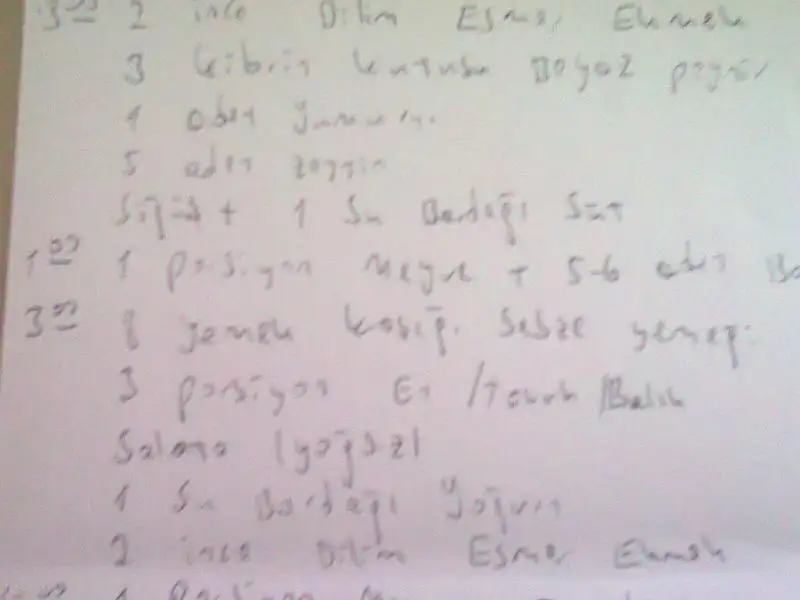 3 00 2 ince Dilim Esmer Ekmek
3 kibrit kutusu Beyaz peynir
1 adet yumurta
5 adet zeytin
Söğüş + 1 Su Bardağı Süt
1 00 1 porsiyon Meyve + 5-6 adet
3 00 8 yemek kaşığı Sebze yemeği
3 porsiyon Et /Tavuk /Balık
Salata (yağsız)
1 Su Bardağı Yoğurt
2 ince Dilim Esmer Ekmek
1 Porsiyon